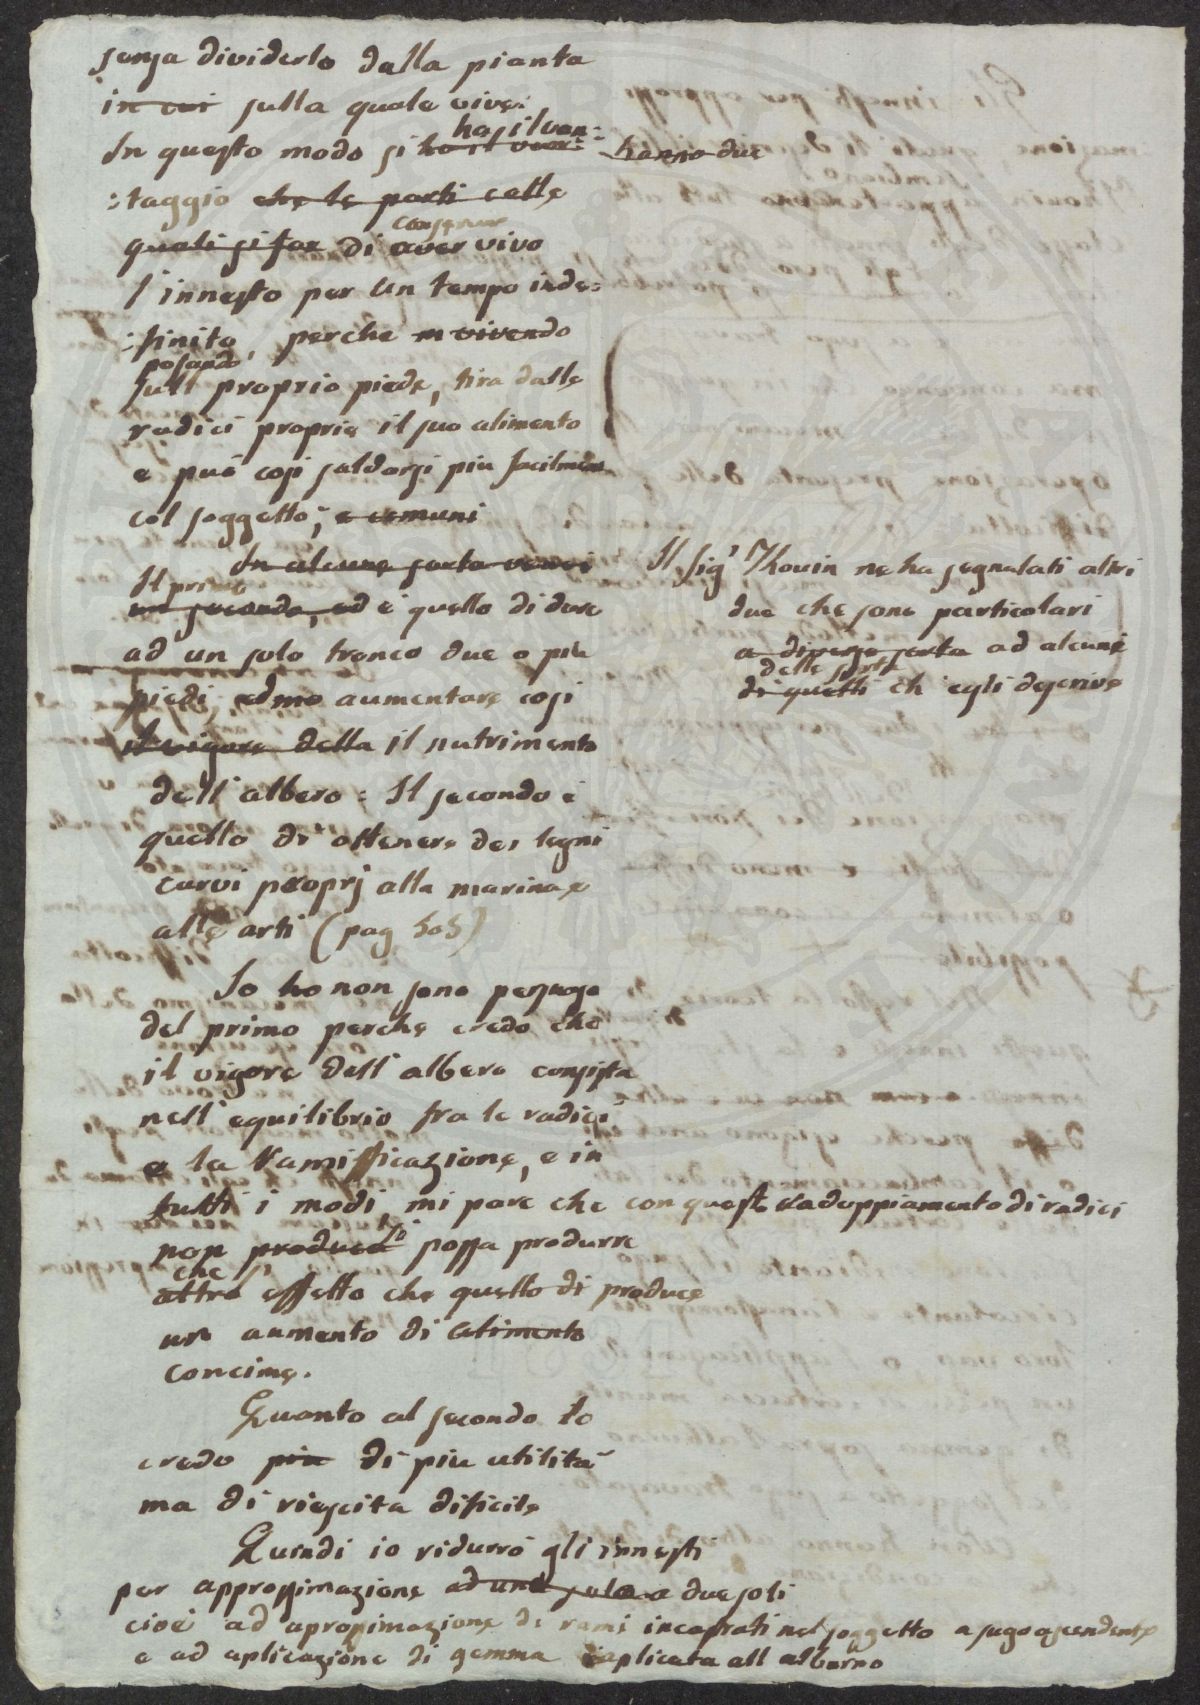 senza dividerlo dalla pianta
in cui sulla quale vive:
ha il van:
In questo modo si ha il van: hanno due
:taggio che le parti colle
conservar
quali si fan di aver vivo
l'innesto per un tempo inde:
:finito, perche in vivendo
posando
sull proprio piede, tira dalle
radici proprie il suo alimento
e può cosi saldarsi piu facilmente
col soggetto; e comuni
In alcune sorta
Il primo
un secondo, ed è quello di dare
ad un solo tronco due o piu
piedi, ed aumentare cosi
il vigore della il nutrimento
dell'albero: Il secondo è
quello di ottenere dei legni
curvi proprj alla marina e
alle arti (pag 505)
Io ho non sono persuaso
del primo perche credo che
il vigore dell'albero consista
nell'equilibrio fra le radici
e la ramificazione, e in
tutti i modi, mi pare che con questo radoppiamento di radici
non produca possa produrre
che
altro effetto che quello di produce
un aumento di alimento
concime.
Quanto al secondo lo
credo piu di piu utilità
ma di riescita dificile
Quindi io ridurrò gli innesti
per approssimazione ad una sola a due soli
cioè ad aprossimazione di rami incastrati nel soggetto a sugo ascendente
e ad aplicazione di gemma aplicata all alburno
Il Sig.r Thouin ne ha segnalati altri
due che sono particolari
a diverse sorta ad alcune
delle sorte
di quelli ch'egli descrive